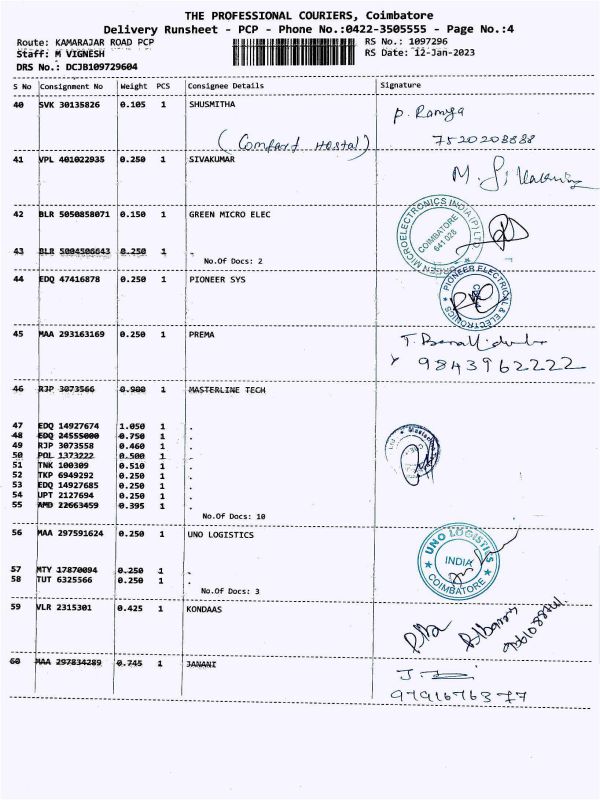 THE PROFESSIONAL COURIERS, Coimbatore
Delivery Runsheet - PCP - Phone No.:0422-3505555 - Page No.:4
Route: KAMARAJAR ROAD PCP RS No.: 1097296
Staff: M VIGNESH RS Date: 12-Jan-2023
DRS No.: DCJB109729604
S No Consignment No Weight PCS Consignee Details Signature
40 SVK 30135826 0.105 1 SHUSMITHA P. Ramya
(Comfort Hostal) 7520208888
41 VPL 401022935 0.250 1 SIVAKUMAR
42 BLR 5050858071 0.150 1 GREEN MICRO ELEC
GREEN MICROELECTRONICS INDIA (P) LTD
COIMBATORE
641 028
43 BLR 5004506643 0.250 1 .
No.Of Docs: 2
44 EDQ 47416878 0.250 1 PIONEER SYS
PIONEER ELECTRICAL & ELECTRONICS
45 MAA 293163169 0.250 1 PREMA
9843962222
46 RJP 3073566 0.900 1 MASTERLINE TECH
47 EDQ 14927674 1.050 1 .
48 EDQ 24555000 0.750 1 .
49 RJP 3073558 0.460 1 .
50 POL 1373222 0.500 1 .
51 TNK 100309 0.510 1 .
52 TKP 6949292 0.250 1 .
53 EDQ 14927685 0.250 1 .
54 UPT 2127694 0.250 1 .
55 AMD 22663459 0.395 1 .
No.Of Docs: 10
56 MAA 297591624 0.250 1 UNO LOGISTICS
UNO LOGISTICS
INDIA
COIMBATORE
57 MTY 17870094 0.250 1 .
58 TUT 6325566 0.250 1 .
No.Of Docs: 3
59 VLR 2315301 0.425 1 KONDAAS
60 MAA 297834289 0.745 1 JANANI
9791676377